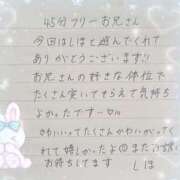 45分フリーお兄さん
今回はしほと遊んでくれて
ありがとうございます!!
お兄さんの好きな体位で
たくさん突いてもらえて気持ち
よかったですー
かわいいってたくさんかわいがってく
れて嬉しかったよ また次
お待ちしてます しほ